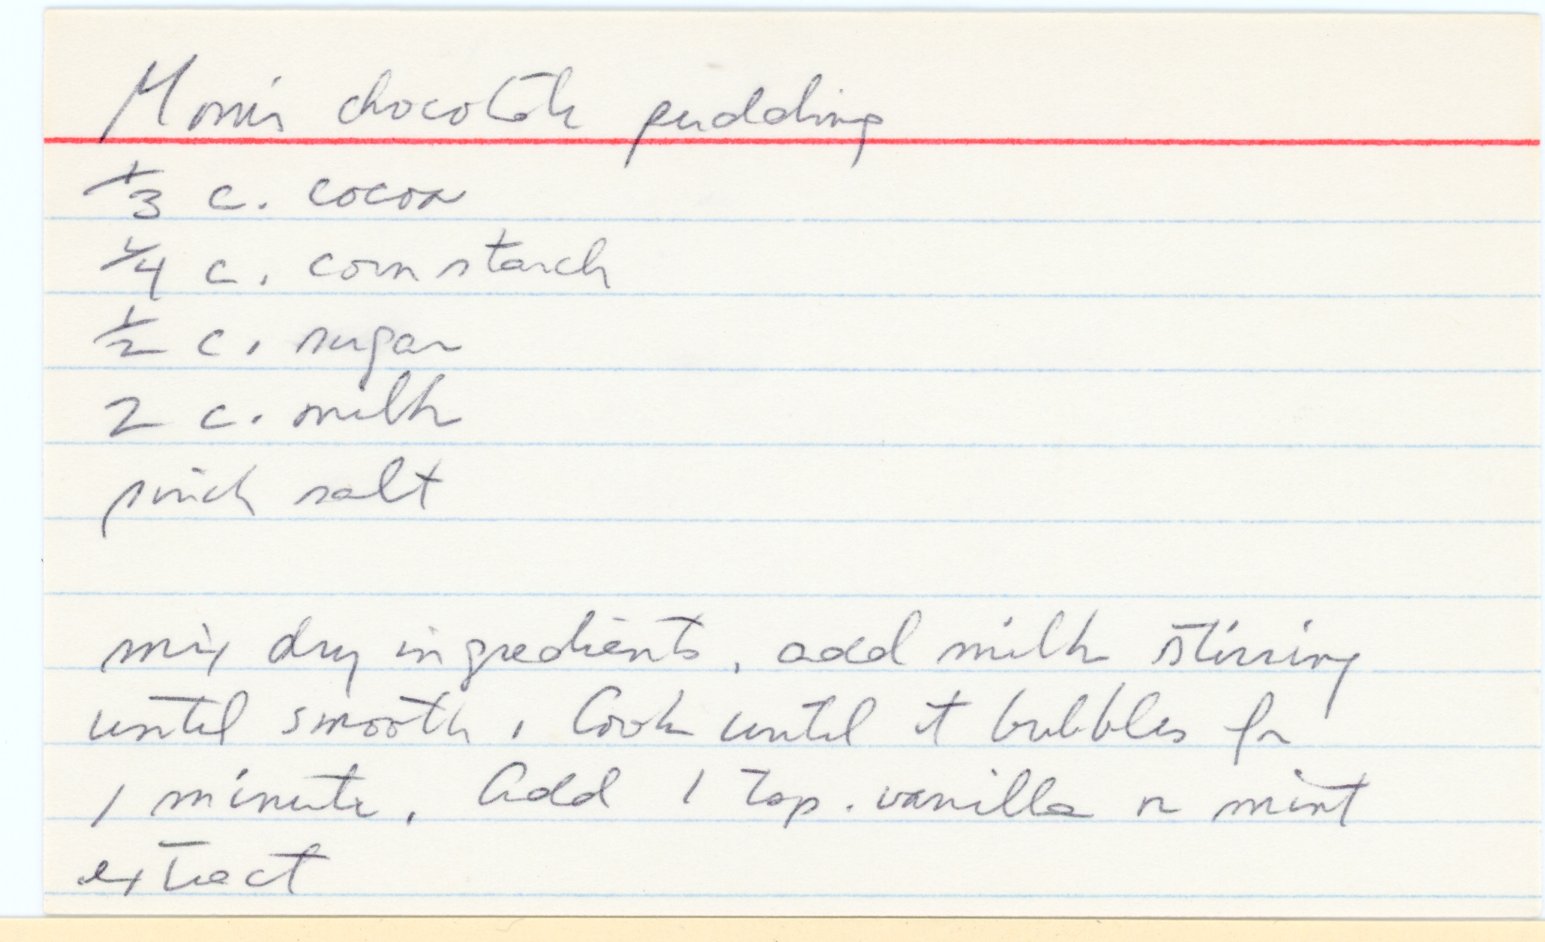 Mom's chocolate pudding
1/3 c. cocoa
1/4 c. corn starch
1/2 c. sugar
2 c. milk
pinch salt
mix dry ingredients, add milk stirring
until smooth. Cook until it bubbles for
1 minute. Add 1 Tsp. vanilla or mint
extract